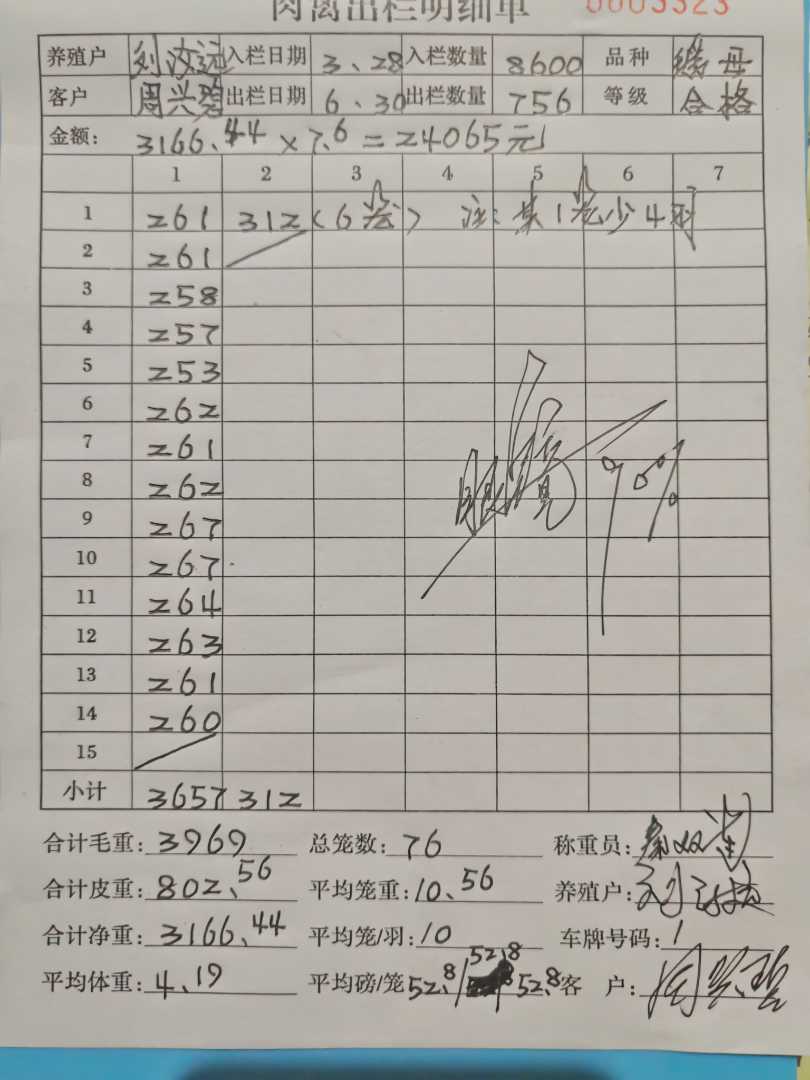 肉禽出栏明细单 0003323
养殖户 刘汝远 入栏日期 3、28 入栏数量 8600 品种
客户 周兴碧 出栏日期 6、30 出栏数量 756 等级 合格
金额: 3166.44 × 7.6 = 24065元
1 2 3 4 5 6 7
1 261 312 (6笼) 注: 其1笼少4羽
2 261
3 258
4 257
5 253
6 262
7 261
8 262
9 267
10 267
11 264
12 263
13 261
14 260
15
小计 3657 312
合计毛重: 3969 总笼数: 76 称重员:
合计皮重: 802.56 平均笼重: 10.56 养殖户:
合计净重: 3166.44 平均笼/羽: 10 车牌号码: 1
平均体重: 4.19 平均磅/笼 52.8 / 52.8 52.8 客 户: 周兴碧